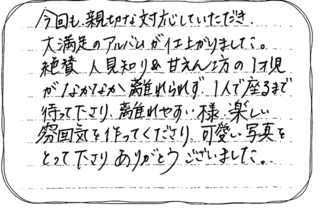 今回も、親切な対応していただき、
大満足のアルバムが仕上がりました。
絶賛 人見知り&甘えん坊の1才児
がなかなか離れられず、1人で座るまで
待って下さり、離れやすい様、楽しい
雰囲気を作ってくださり、可愛い写真を
とって下さりありがとうございました。